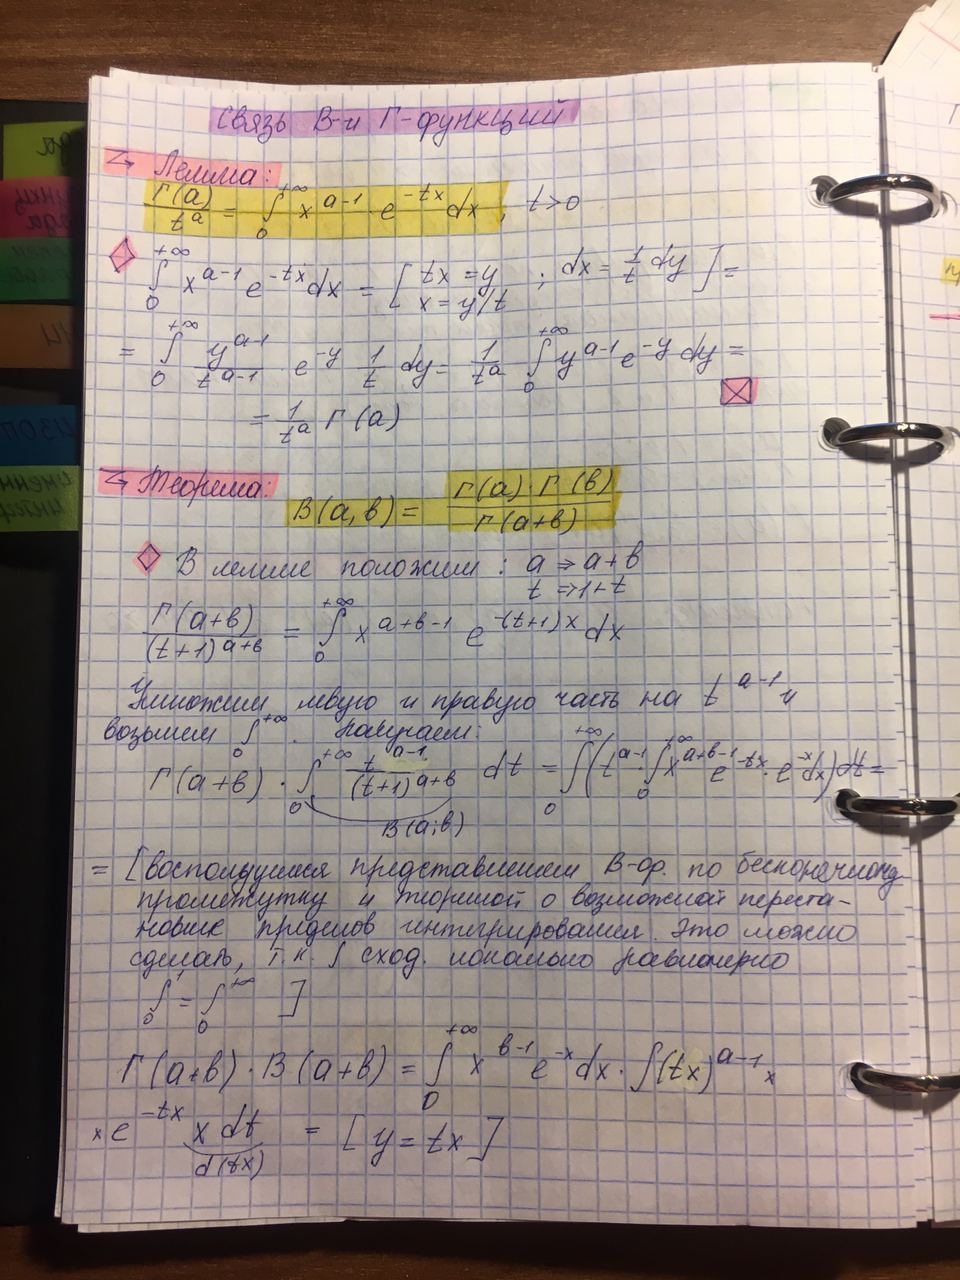 Связь В-и Г-функций
Лемма:
Г(a)/t^a = ∫₀^{+∞} x^{a-1} · e^{-tx} dx, t>0
∫₀^{+∞} x^{a-1} e^{-tx} dx = [ tx = y ; dx = 1/t dy ] =
x = y/t
= ∫₀^{+∞} y^{a-1}/t^{a-1} e^{-y} 1/t dy = 1/t^a ∫₀^{+∞} y^{a-1} e^{-y} dy =
= 1/t^a Г(a)
Теорема:
В(a,b) = Г(a)·Г(b)/Г(a+b)
В лемме положим: a ⇒ a+b
t ⇒ 1+t
Г(a+b)/(t+1)^{a+b} = ∫₀^{+∞} x^{a+b-1} e^{-(t+1)x} dx
Умножим левую и правую часть на t^{a-1} и
возьмем ∫₀^{+∞}. Получаем:
Г(a+b) · ∫₀^{+∞} t^{a-1}/(t+1)^{a+b} dt = ∫₀^{+∞} (t^{a-1} · ∫₀^{+∞} x^{a+b-1} e^{-tx} · e^{-x} dx) dt =
В(a;b)
= [воспользуемся представлением В-ф. по бесконечному
промежутку и теоремой о возможной переста-
новке пределов интегрирования. Это можно
сделать, т.к. ∫ сход. локально равномерно
∫₀^1 = ∫₀^{+∞} ]
Г(a+b)·В(a+b) = ∫₀^{+∞} x^{b-1} e^{-x} dx · ∫(tx)^{a-1} ×
× e^{-tx} x dt = [ y = tx ]
d(tx)